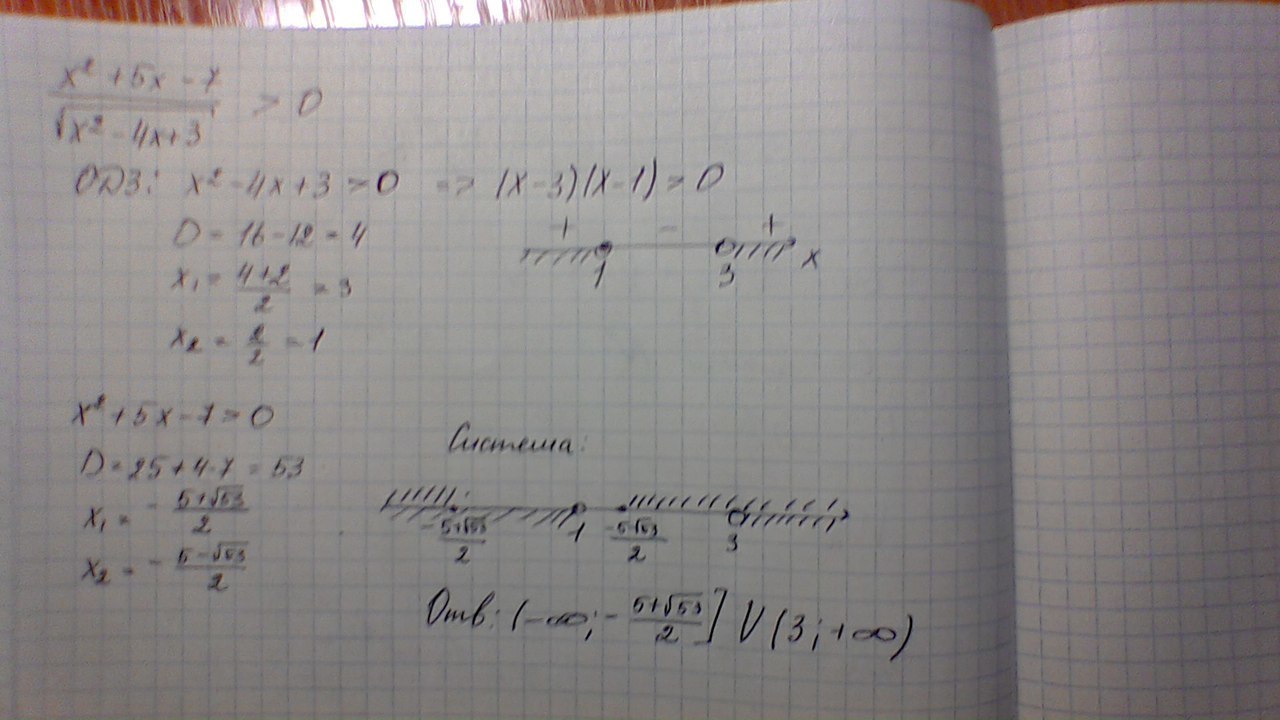 x² + 5x - 7
√x² - 4x + 3 > 0
ОДЗ: x² - 4x + 3 > 0 => (x - 3)(x - 1) > 0
D = 16 - 12 = 4
+ - +
1 3 x
x₁ = (4+2)/2 = 3
x₂ = 2/2 = 1
x² + 5x - 7 = 0
D = 25 + 4·7 = 53
x₁ = - (5+√53)/2
x₂ = - (5-√53)/2
Система:
-(5+√53)/2 1 -(5√53)/2 3
Отв: (-∞; -(5+√53)/2] ∪ (3; +∞)